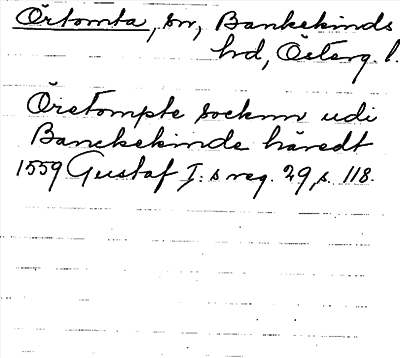 Örtomta, sn, Bankekinds
hd, Österg. l.
Örstompte socknn udi
Banckekinde häredt
1559 Gustaf I:s reg. 29, s. 118.